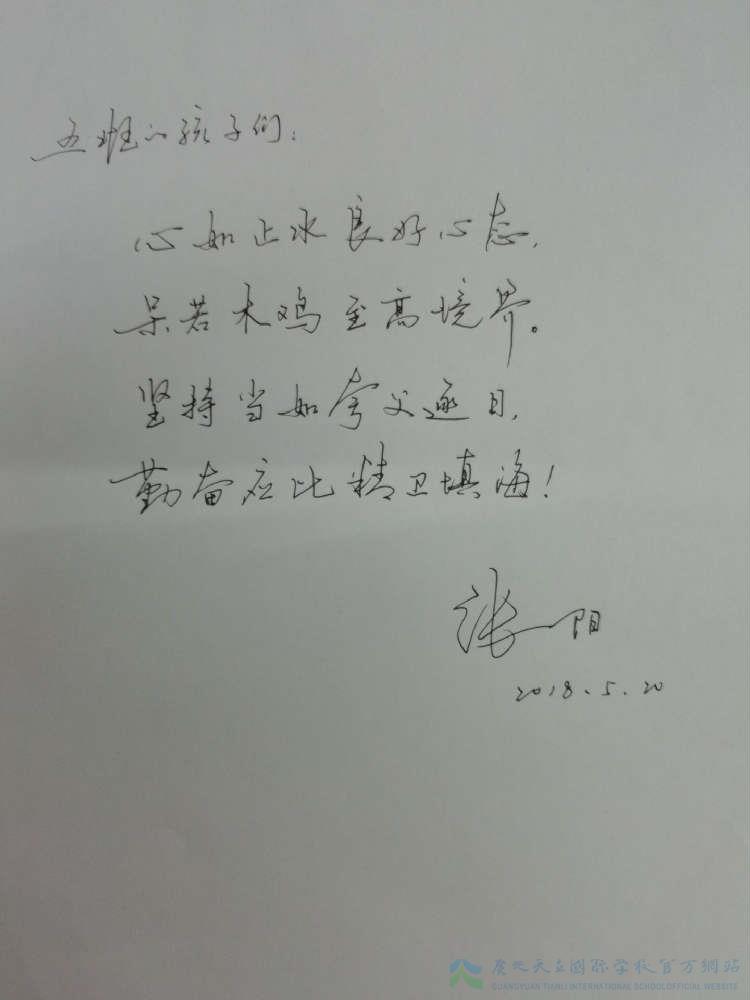 五班的孩子们：
心如止水良好心态，
呆若木鸡至高境界。
坚持当如夸父逐日，
勤奋应比精卫填海！
张阳
2018.5.20
广元天立国际学校官方網站
GUANGYUAN TIANLI INTERNATIONAL SCHOOL OFFICIAL WEBSITE